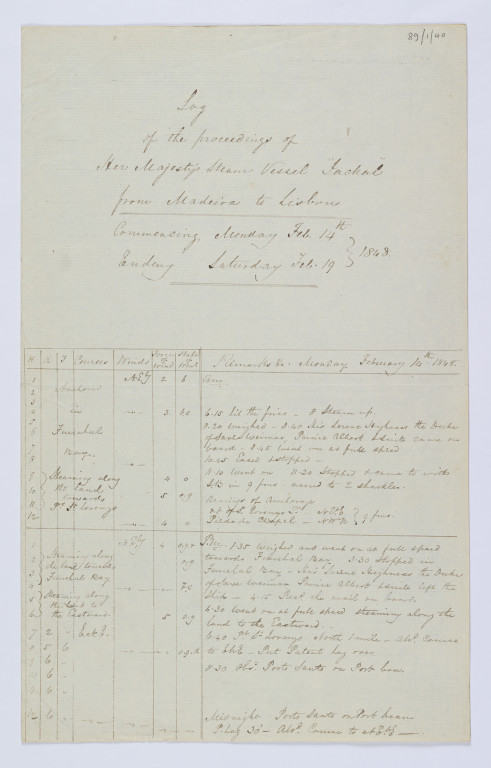 89/1/40
Log
of the proceedings of
Her Majesty's Steam Vessel "Jackal"
from Madeira to Lisbon
Commencing, Monday Feb. 14th
Ending Saturday Feb. 19 } 1848.
H K F Courses Winds Force Wind State Remarks &c. Monday February 14th 1848.
1 NEy 2 b Am.
2 Anchored
3
4 in 3 6.15 lit the fires - 8 Steam up.
5 8.20 weighed - 8.40 His Serene Highness the Duke
6 Funchal of Saxe Weimar, Prince Albert & Suite came on
7 Bay. board - 8.45 went on at full speed
8 10.25 Eased & stopped -
9 Steaming along 4 0 11.10 went on 11.20 Stopped & came to with
10 the Land in 9 fms. veered to 2 shackles.
11 towards 5 og Bearings of Anchorage
12 Pt. St. Lorenzo of St. Lorenzo Pt.
4 0 Piedade Chapel - } 9 fms.
1 NEy 4 Pm. 1.35 weighed and went on at full speed
2 Steaming along towards Funchal Bay - 3.30 stopped in
3 the land towards og Funchal Bay - His Serene Highness the Duke
4 Funchal Bay of Saxe Weimar Prince Albert & suite left the
5 Steaming along Ship - 4.15 Recd. the mail on board
6 the land to 5 og 4.30 went on at full speed steaming along the
the Eastward. land to the Eastward.
7 2 EbE 6.40 Pt. St. Lorenzo North 1 mile - alt. Course
8 5 6 to EbE - Put Patent Log over
9 6 8.30 Obs. Porto Santo on Port bow
10 6
11 6
12 6 Midnight Porto Santo on Port beam
P. Log 30 - Alt. Course to